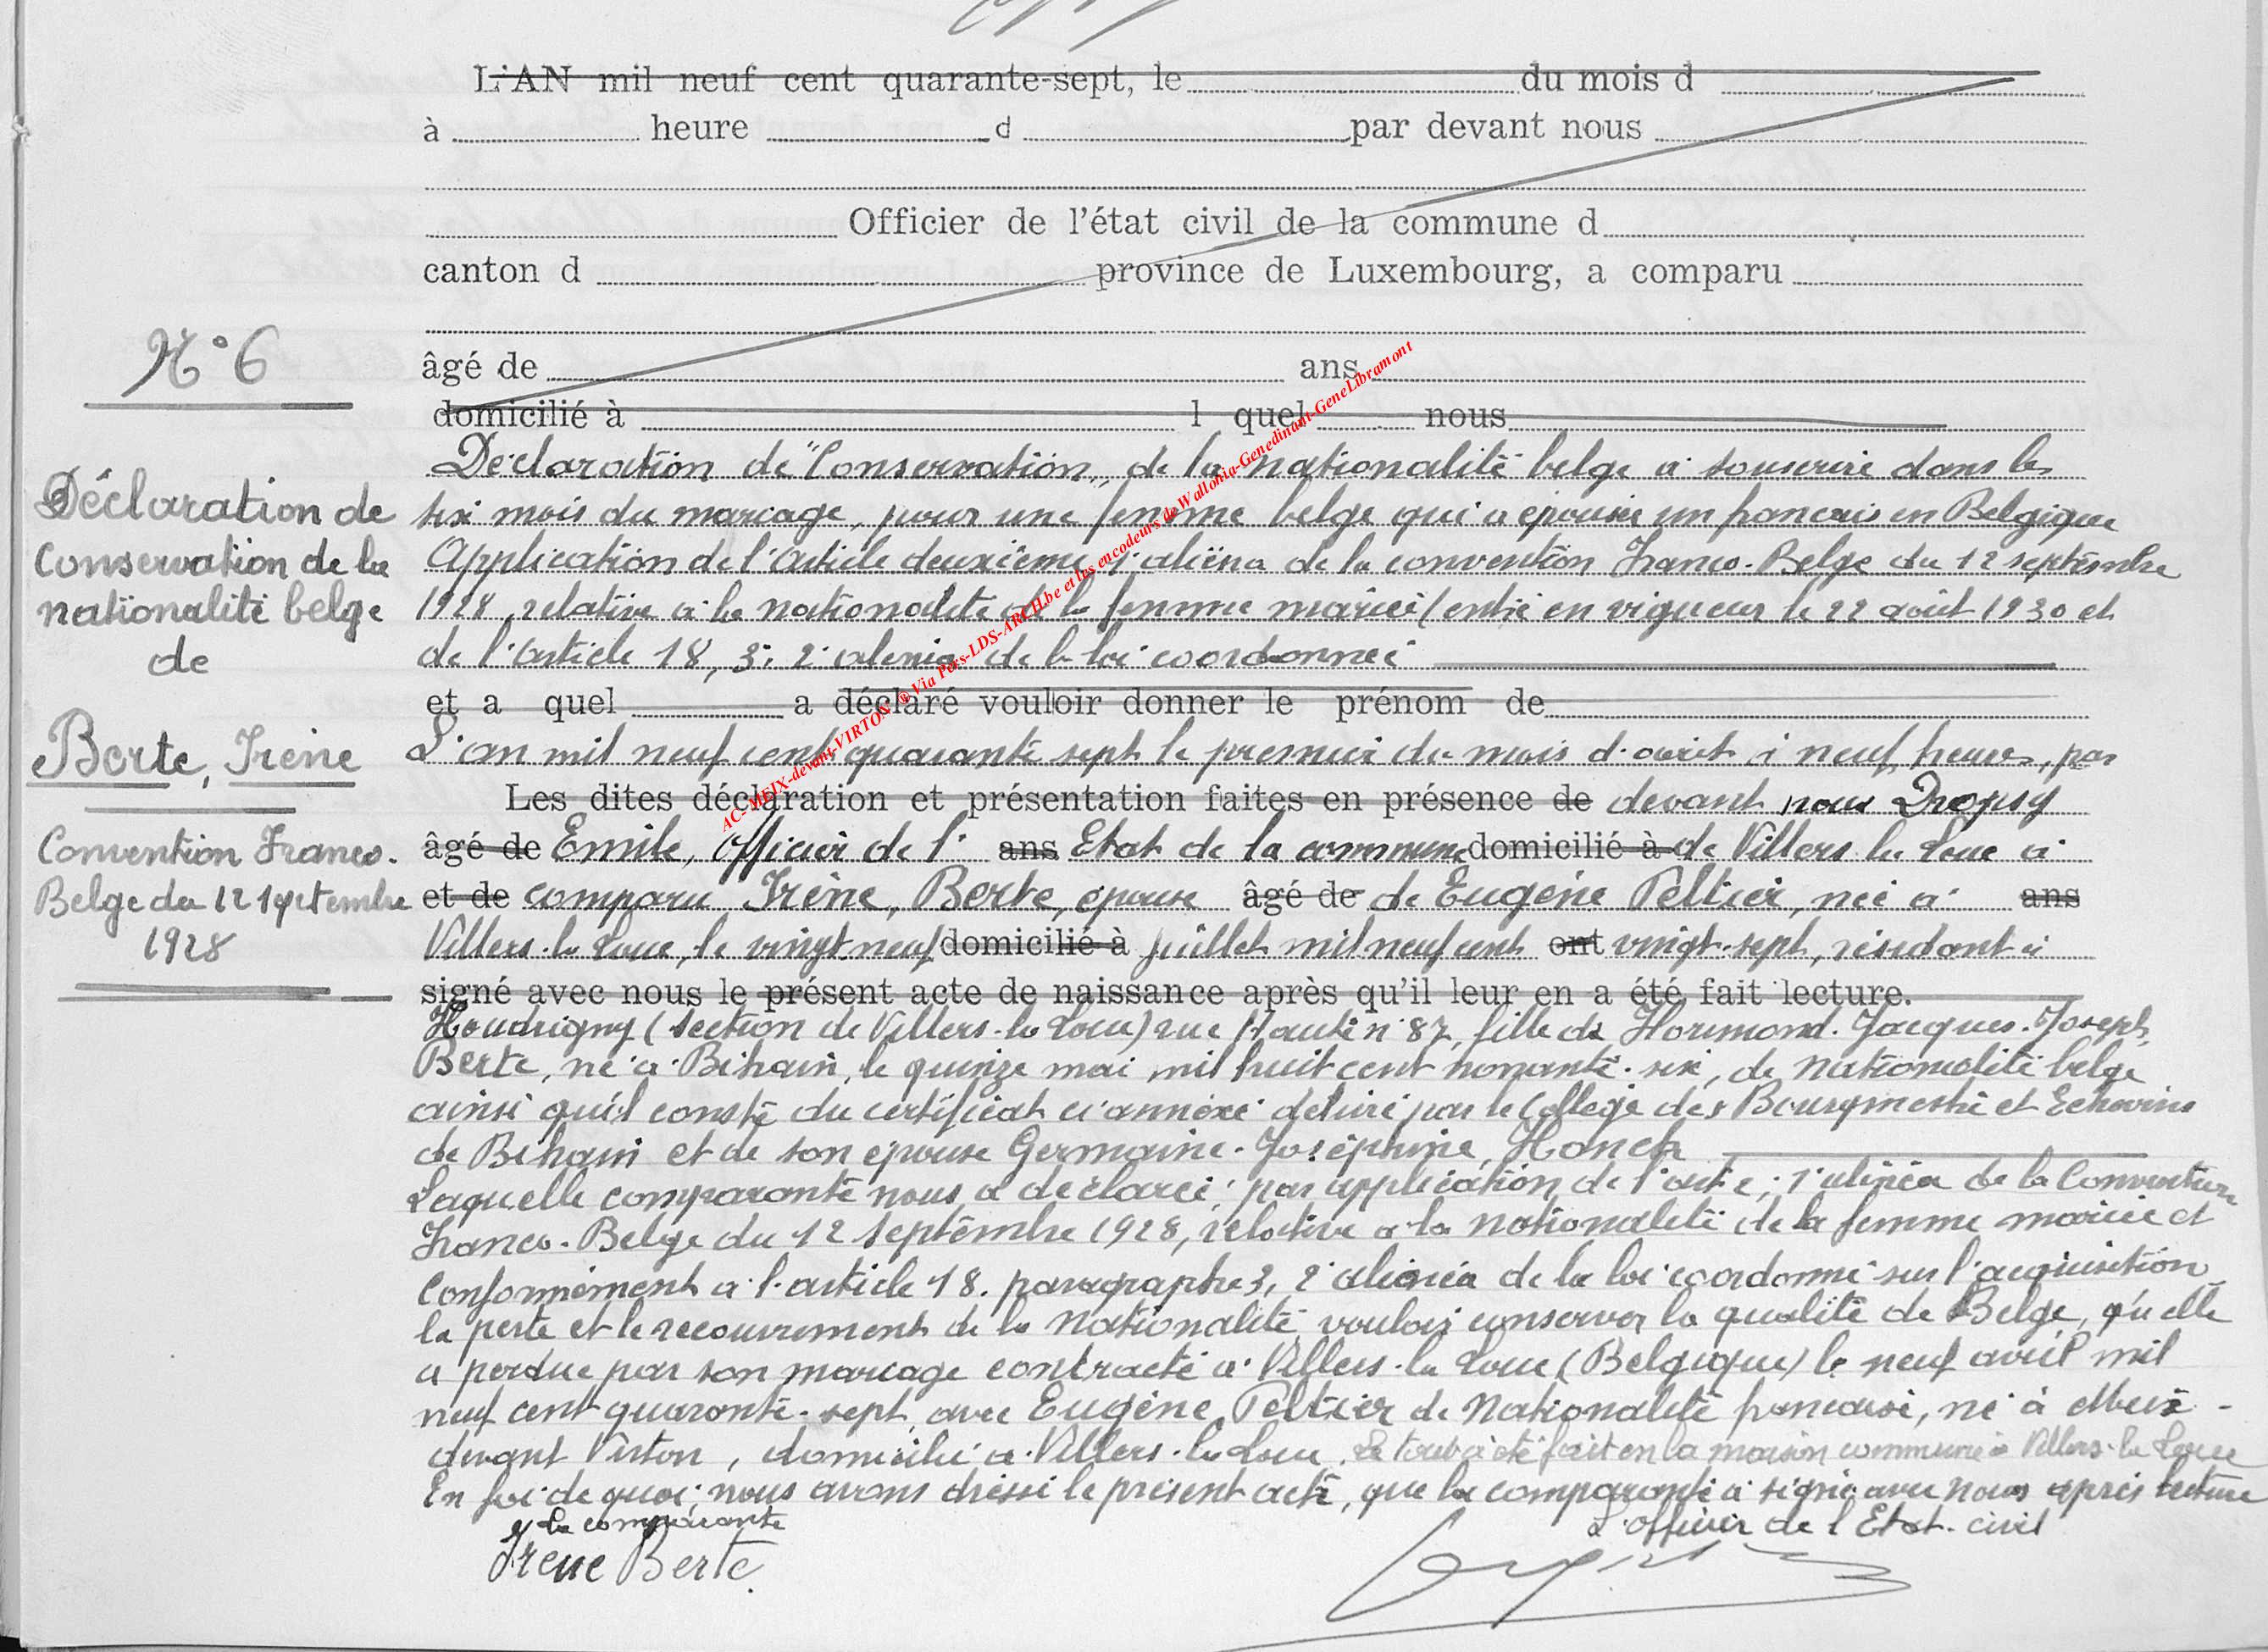 L'AN mil neuf cent quarante-sept, le du mois d
à heure d par devant nous
Officier de l'état civil de la commune d
canton d province de Luxembourg, a comparu
N° 6
âgé de ans
domicilié à l quel nous
Déclaration de "Conservation" de la nationalité belge à souscrire dans les
six mois du mariage, pour une femme belge qui a épousé un français en Belgique
Application de l'Article deuxième 1° aliéna de la convention Franco-Belge du 12 septembre
1928, relative à la nationalité de la femme mariée (entré en vigueur le 22 août 1930 et
de l'Article 18, 3: 2° alenia de la loi coordonnée
Déclaration de
Conservation de la
nationalité belge
de
Berte, Irène
Convention Franco-
Belge du 12 septembre
1928
et a quel a déclaré vouloir donner le prénom de
L'an mil neuf cent quarante sept le premier du mois d'août à neuf heures, par
Les dites déclaration et présentation faites en présence de devant nous Dropsy
âgé de Emile, Officier de l' ans Etat de la commune domicilié à de Villers la Loue a
et de comparu Irène, Berte, épouse âgé de de Eugène Peltier, née à ans
Villers-la Loue, le vingt neuf domicilié à juillet mil neuf cent ont vingt-sept, résidant à
signé avec nous le présent acte de naissance après qu'il leur en a été fait lecture.
Houdrigny (section de Villers-la Loue) rue Haute n° 87, fille de Jacques-Joseph
Berte, né à Bihain, le quinze mai mil huit cent nonante-six, de nationalité belge
ainsi qu'il conste du certificat ci annexé délivré par le Collège des Bourgmestre et Echevins
de Bihain et de son épouse Germaine-Joséphine,
Laquelle comparante nous a déclaré, par application de l'art 2; 1° alinéa de la Convention
Franco-Belge du 12 septembre 1928, relative à la nationalité de la femme mariée et
Conformément à l'article 18. paragraphe 3, 2° alinéa de la loi coordonné sur l'acquisition
la perte et le recouvrement de la nationalité vouloir conserver la qualité de Belge, qu'elle
a perdue par son mariage contracté à Villers-la Loue (Belgique) le neuf avril mil
neuf cent quarante-sept avec Eugène Peltier de nationalité française, né à Meix-
devant Virton, domicilié à Villers-la Loue. Le tout a été fait en la maison communale Villers-la Loue
En foi de quoi, nous avons dressé le présent acte, que la comparante a signé avec nous après lecture
La comparante L'officier de l'Etat-civil
Irene Berte
AC-MEIX-devant-VIRTON ® Via Pers-LDS-ARCH.be et les encodeurs de Wallonia-Genedinant-GeneLibramont